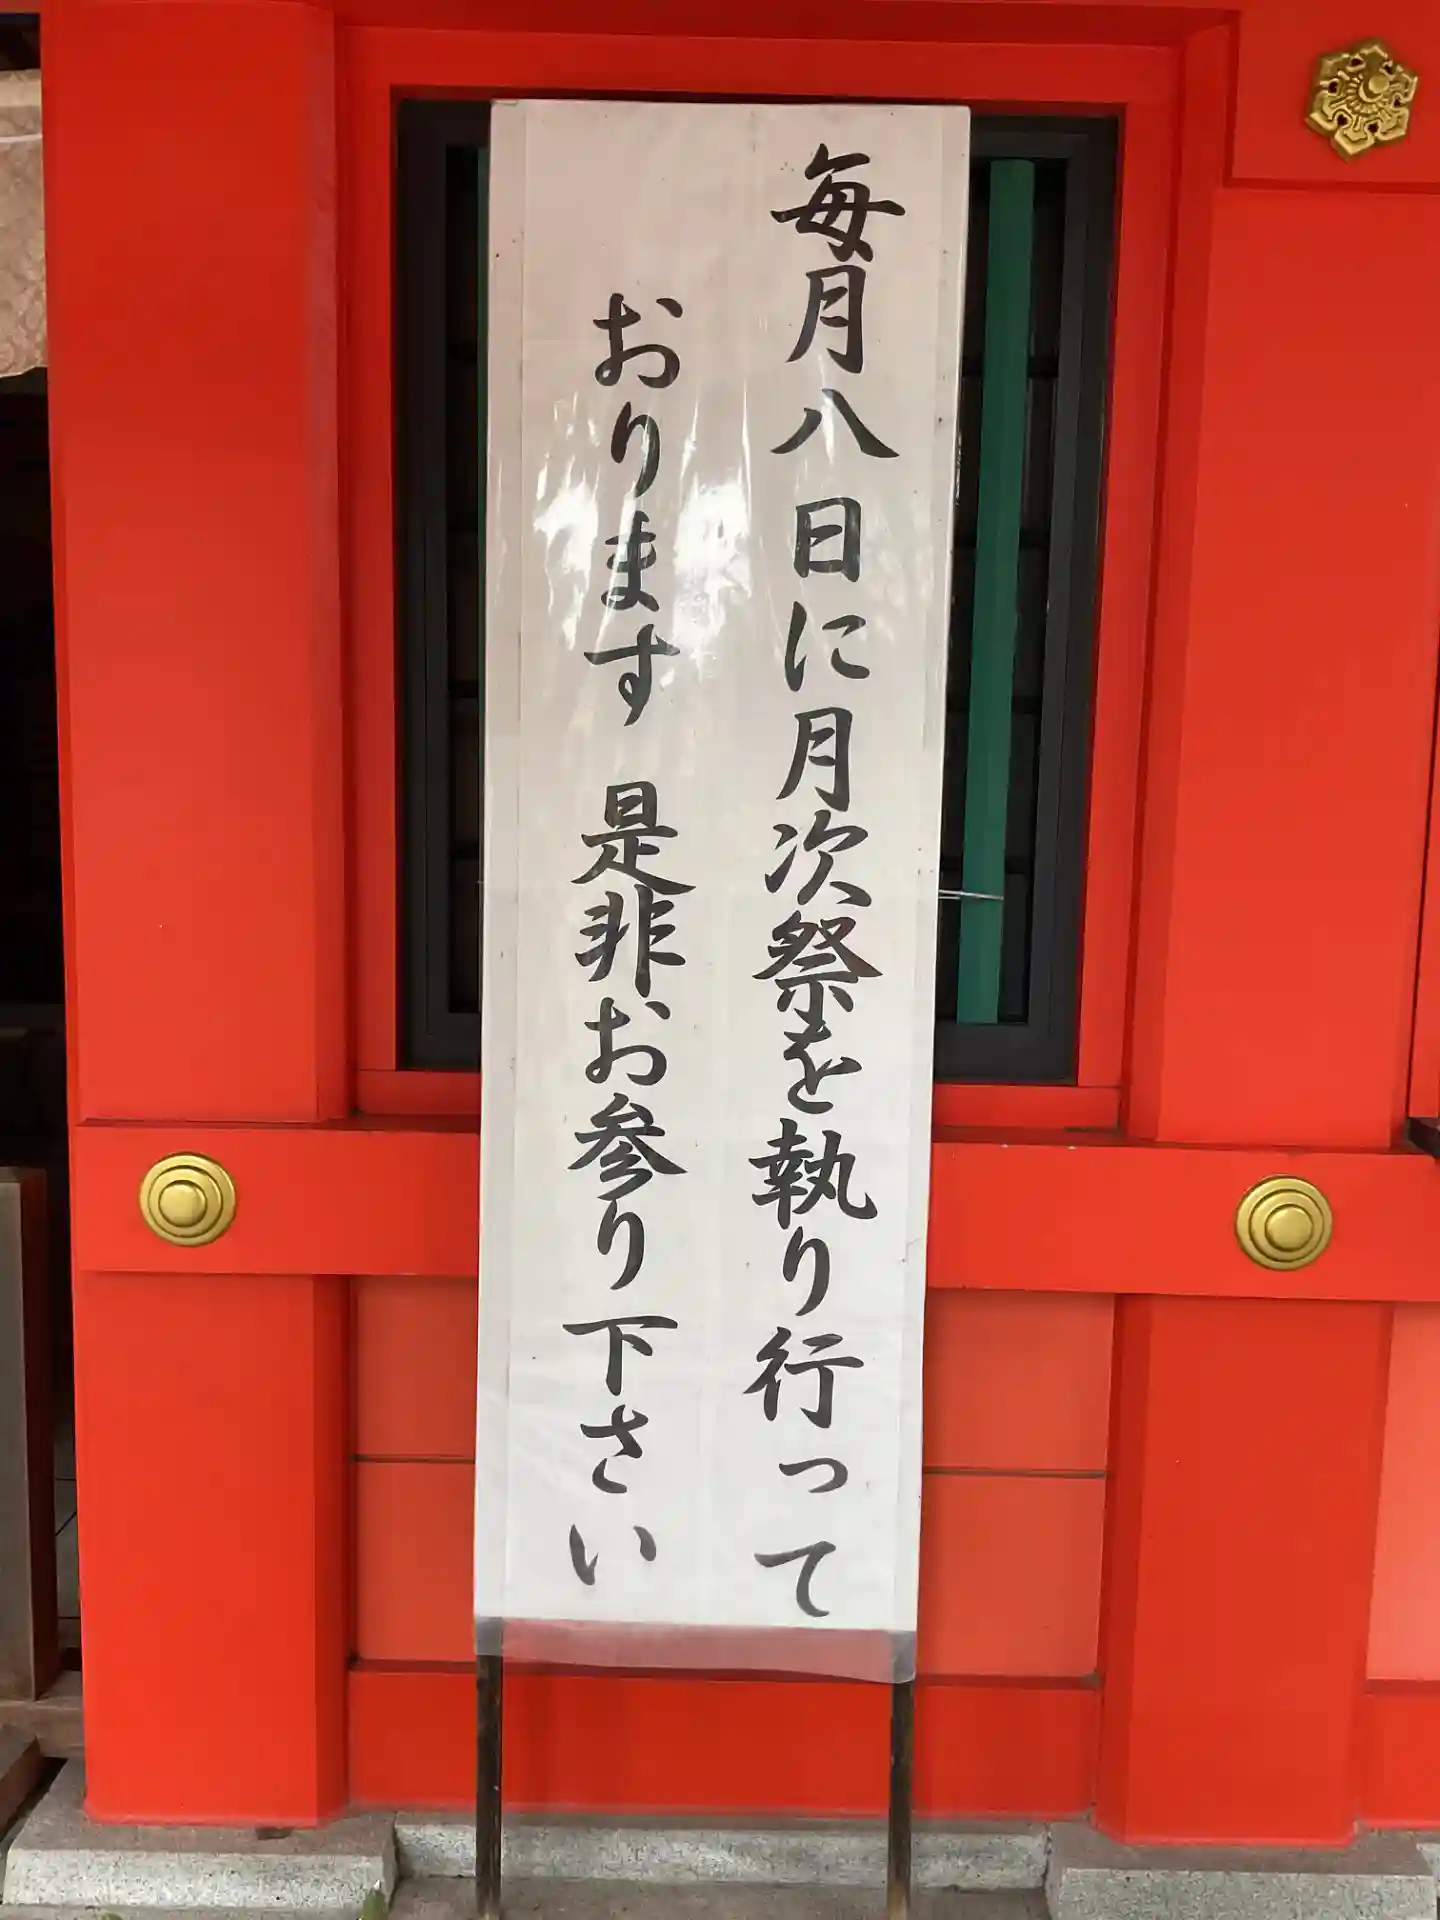 毎月八日に月次祭を執り行って
おります 是非お参り下さい